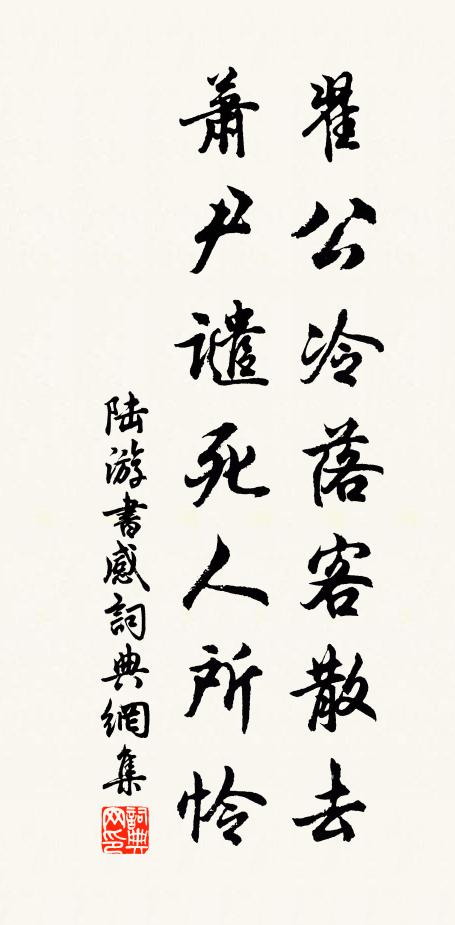 翟公冷落客散去
萧尹谴死人所怜
陆游书感词典网集
词典网印